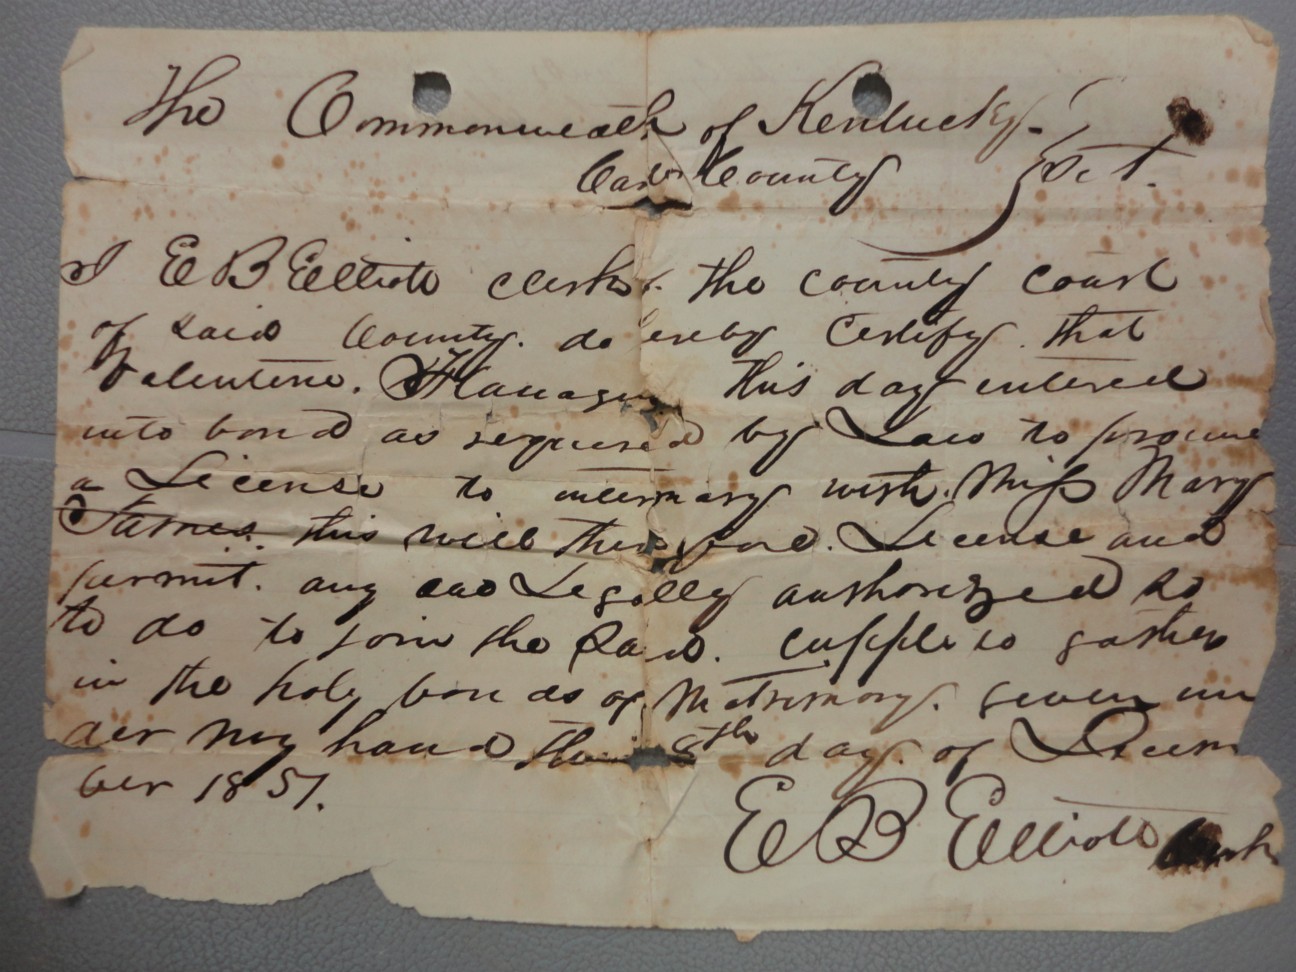 The Commonwealth of Kentucky
County Sct.
I E B Elliott clerk of the county court
of said County. do hereby Certify that
Valentine. Flanagin this day entered
into bond as required by Law to procure
a License to intermary with. Miss Mary
James. this will therefore. License and
permit. any Legally authorized so
to do to join the said. cupple to gather
in the holy bonds of Matrimony. given un
der my hand this 8th day. of Decem
ber 1851.
E B Elliott Clerk